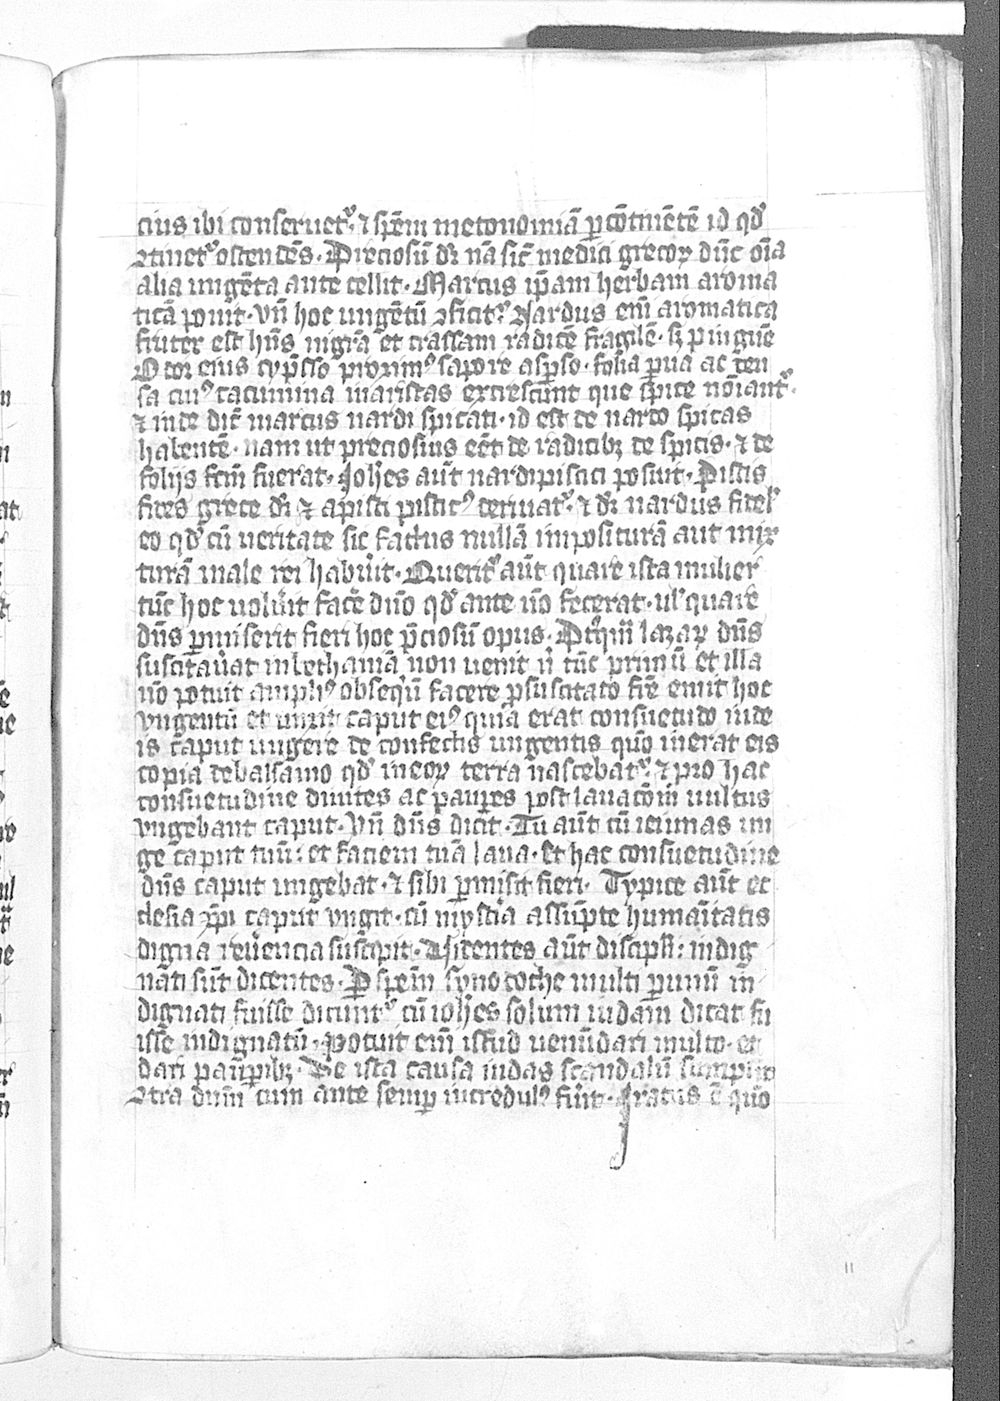 cius ibi conseruet᷒· ⁊ spēm metonomiā ꝑ cōtinētē id qd̕
ꝯtinet᷒ ostendēs· Preciosū dr̄ nā sic̄ medici grecoꝝ dn̄t oīa
alia ungēta ante cellit· Marcus ip̄am herbam aroma
ticā ponit· vn̄ hoc ungētū ꝯficit᷒· Nardus em̄ aromatica
fruter est hn̄s nigrā et crassam radicē fragilē· sꝫ pinguē
Odor eius cyp̄sso proxim᷒ sapore asꝑso· folia parua ac den
sa cui᷒ cacumina in aristas excrescunt que spice nōiant᷒·
⁊ inde dic̄ marcus nardi spicati· id est de nardo spicas
habentē· nam ut preciosius eēt de radicibꝫ de spicis· ⁊ de
folijs fcm̄ fuerat· Joh̄es aūt nardi pistici posuit· Pistis
fides grece dr̄ ⁊ a pisti pistic᷒ deriuat᷒· ⁊ dr̄ nardus fidel̕
eo qd̕ cū ueritate sic factus nullā imposituram aut mix
turā male rei habūit· Querit᷒ aūt quare ista mulier
tūc hoc uolūit facē dn̄o qd̕ ante nō fecerat· ul̕ quare
dn̄s ꝑmiserit fieri hoc p̄ciosū opus· Ptq̄m lazaꝝ dn̄s
suscitauāt in bethaniā non uenit n̄ tūc primū et illa
nō potuit ampli᷒ obseqūm facere ꝓ suscitato frē emit hoc
vngentū et unxit caput ei᷒ quia erat consuetudo iude
is caput ungere de confectis ungentis quō inerat eis
copia de balsamo qd̕ in eoꝝ terra nascebat᷒· ⁊ pro hac
consuetudine diuites ac pauꝑes post lauacōm̄ uultus
vngebant caput· Vn̄ dn̄s dicit· Tu aūt cū ieiunas un
ge caput tuū: et faciem tuā laua· Et hac consuetudine
dn̄s caput ungebat· ⁊ sibi ꝑmisit fieri· Typice aūt ec
clesia xp̄i caput vngit· cū mysteria assūpte humaītatis
digna reūencia suscipit· Videntes aūt discipl̄i: indig
nati sūt dicentes· Ꝑ spēm synodoche multi ꝑ unū in
dignati fuisse dicunt᷒ cū ioh̄es solum iudam dicat fu
isse indignatū· Potuit em̄ istud uenūdari multo· et
dari pauꝑibꝫ· De ista causa iudas scandalū sumpsit
ꝯtra dnm̄ cum ante semꝑ incredul᷒ fūit· Iratus ē quō
11